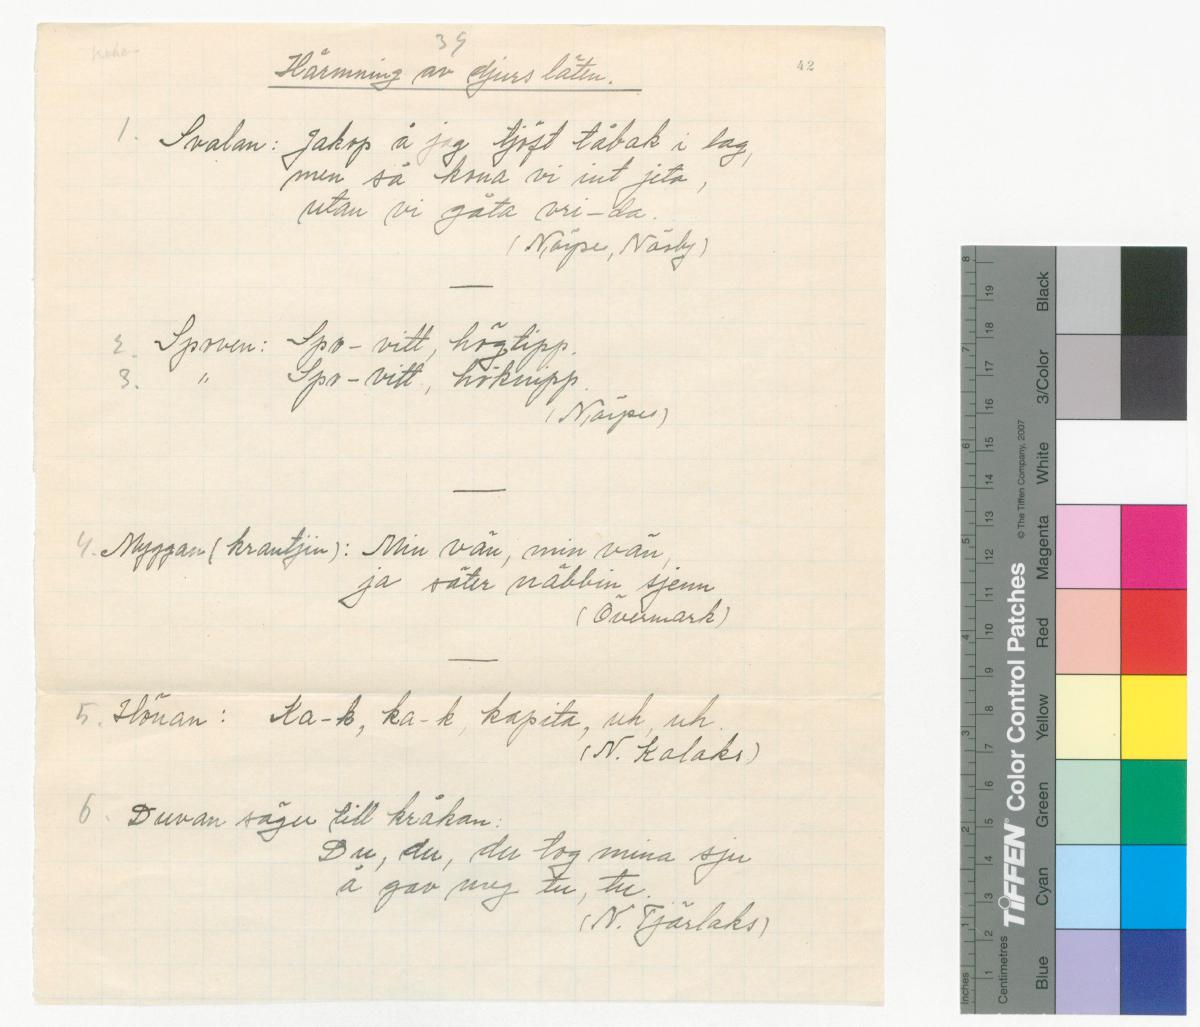 39
42
Härmning av djurs läten.
1. Svalan: Jakop å jag tjöft tåbak i lag,
men så kona vi int jita,
utan vi gåta vri-da.
(Närpes, Näsby)
2. Spoven: Spo-vitt, högtipp.
3. " Spo-vitt, höknipp.
(Närpes)
4. Myggan (krantjin): Min vän, min vän,
ja säter näbbin sjenn
(Övermark)
5. Hönan: Ka-k, ka-k, kapita, uh, uh.
(N. Kalaks)
6. Duvan säger till kråkan:
Du, du, du tog mina sju
å gav meg tu, tu.
(N. Tjärlaks)
Inches
1 2 3 4 5 6 7 8
Centimetres
1 2 3 4 5 6 7 8 9 10 11 12 13 14 15 16 17 18 19
TIFFEN® Color Control Patches
© The Tiffen Company, 2007
Blue
Cyan
Green
Yellow
Red
Magenta
White
3/Color
Black